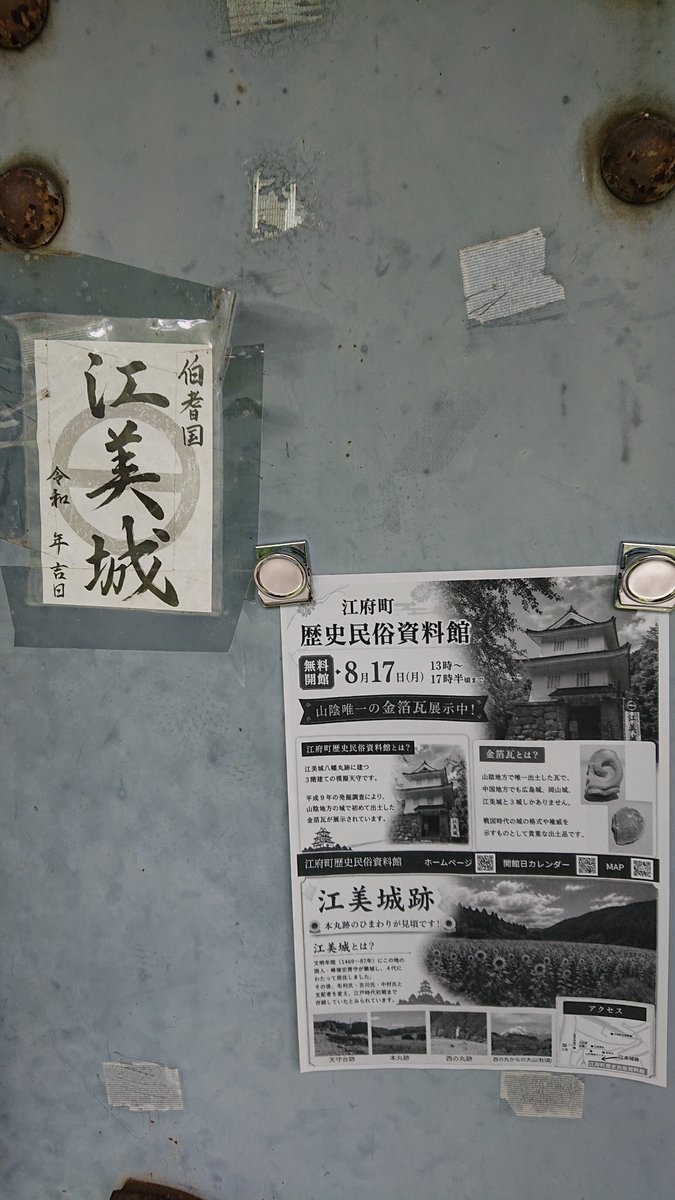 伯耆国
江美城
令和　年吉日
江府町
歴史民俗資料館
無料開館
8月17日(月)
13時～
17時半頃まで
山陰唯一の金箔瓦展示中!
江府町歴史民俗資料館とは?
江美城八幡丸跡に建つ
3階建ての模擬天守です。
平成9年の発掘調査により、
山陰地方の城で初めて出土した
金箔瓦が展示されています。
金箔瓦とは?
山陰地方で唯一出土した瓦で、
中国地方でも広島城、岡山城、
江美城と3城しかありません。
戦国時代の城の格式や権威を
示すものとして貴重な出土品です。
江府町歴史民俗資料館
ホームページ
開館日カレンダー
MAP
江美城跡
本丸跡のひまわりが見頃です!
江美城とは?
文明年間(1469～87年)にこの地の
国人・蜂塚安房守が築城し、4代に
わたって居住しました。
その後、毛利氏・吉川氏・中村氏と
支配者を変え、江戸時代初期まで
存続していたとみられています。
天守台跡
本丸跡
西の丸跡
西の丸からの大山(秋頃)
アクセス
江美城跡
江府町歴史民俗資料館